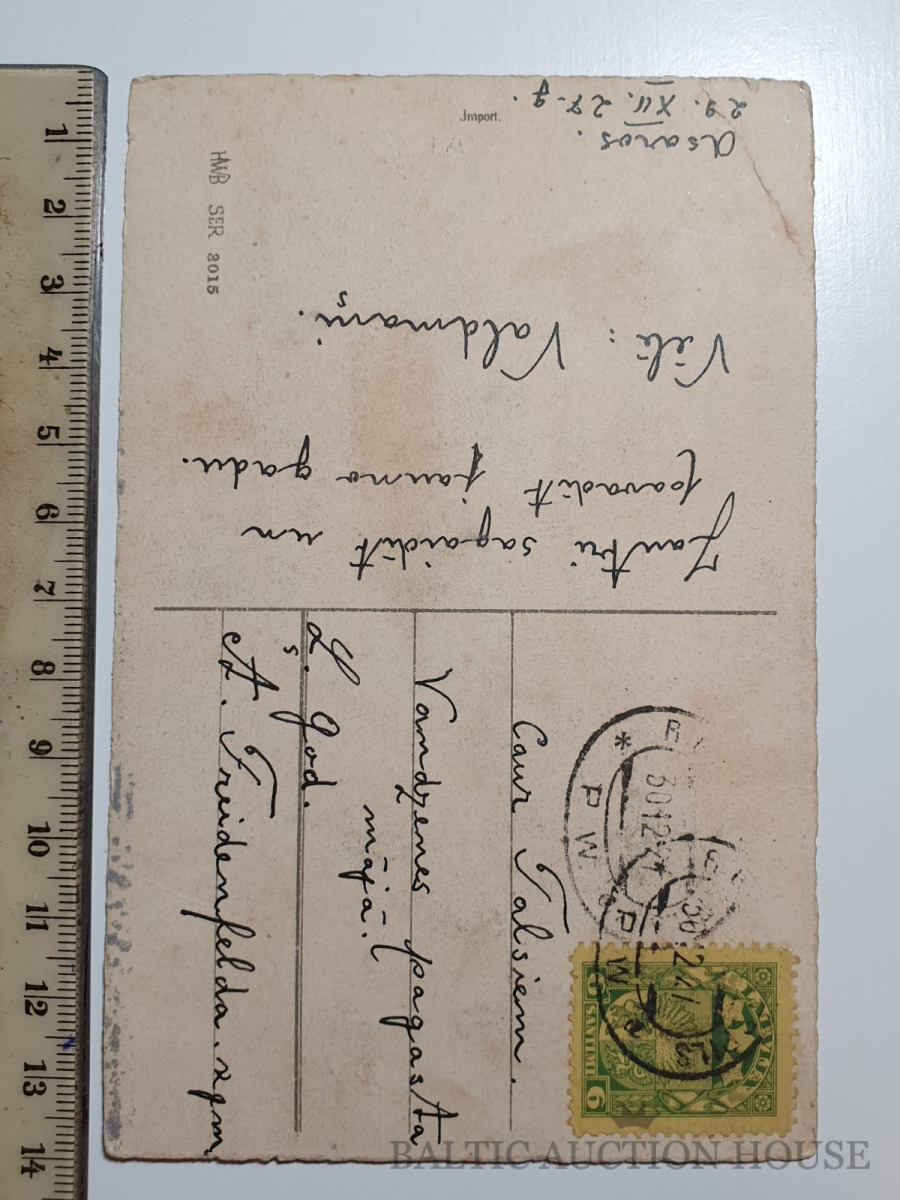 Jautri sagaidīt un
pavadīt jauno gadu.
Vēlē: Valdmaņi.
Asaros.
29. XII. 27. g.
Jmport.
HWB SER 8015
Caur Talsiem.
Vandzenes pagasta
mājā.
Ļ. God.
A. Freidenfelda. kgm
LATVIJA
6 SANTIMI 6
30 12 27
BALTIC AUCTION HOUSE
1
2
3
4
5
6
7
8
9
10
11
12
13
14